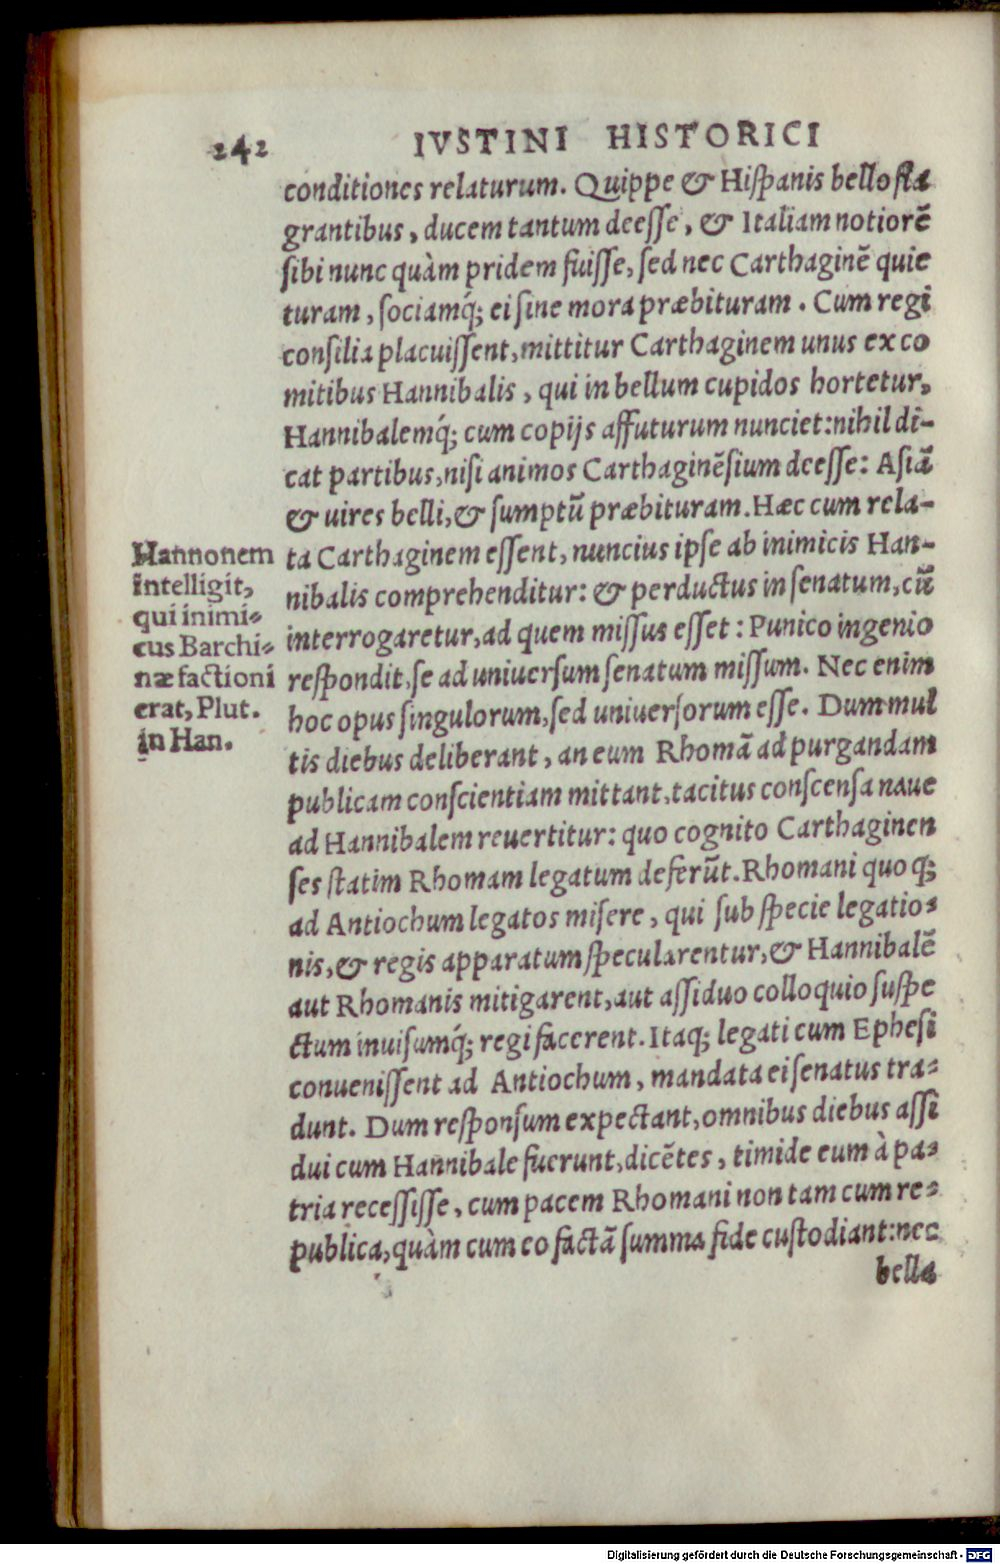 242 IVSTINI HISTORICI
conditiones relaturum. Quippe & Hiſpanis bello fla
grantibus, ducem tantum deeſſe, & Italiam notiorē
ſibi nunc quàm pridem fuiſſe, ſed nec Carthaginē quie
turam, ſociamq́; ei ſine mora præbituram. Cum regi
conſilia placuiſſent, mittitur Carthaginem unus ex co
mitibus Hannibalis, qui in bellum cupidos hortetur,
Hannibalemq́; cum copijs affuturum nunciet: nihil di-
cat partibus, niſi animos Carthaginēſium deeſſe: Aſiā
& uires belli, & ſumptū præbituram. Hæc cum rela-
ta Carthaginem eſſent, nuncius ipſe ab inimicis Han-
nibalis comprehenditur: & perductus in ſenatum, cū
interrogaretur, ad quem miſſus eſſet: Punico ingenio
reſpondit, ſe ad uniuerſum ſenatum miſſum. Nec enim
hoc opus ſingulorum, ſed uniuerſorum eſſe. Dum mul
tis diebus deliberant, an eum Rhomā ad purgandam
publicam conſcientiam mittant, tacitus conſcenſa naue
ad Hannibalem reuertitur: quo cognito Carthaginen
ſes ſtatim Rhomam legatum deferūt. Rhomani quoq;
ad Antiochum legatos miſere, qui ſub ſpecie legatio-
nis, & regis apparatum ſpecularentur, & Hannibalē
aut Rhomanis mitigarent, aut aſſiduo colloquio ſuſpe
ctum inuiſumq́; regi facerent. Itaq; legati cum Epheſi
conueniſſent ad Antiochum, mandata ei ſenatus tra-
dunt. Dum reſponſum expectant, omnibus diebus aſſi
dui cum Hannibale fuerunt, dicētes, timide eum à pa-
tria receſſiſſe, cum pacem Rhomani non tam cum re-
publica, quàm cum eo factā ſumma fide cuſtodiant: nec
bella
Hannonem
intelligit,
qui inimi-
cus Barchi-
næ factioni
erat, Plut.
in Han.
Digitalisierung gefördert durch die Deutsche Forschungsgemeinschaft - DFG